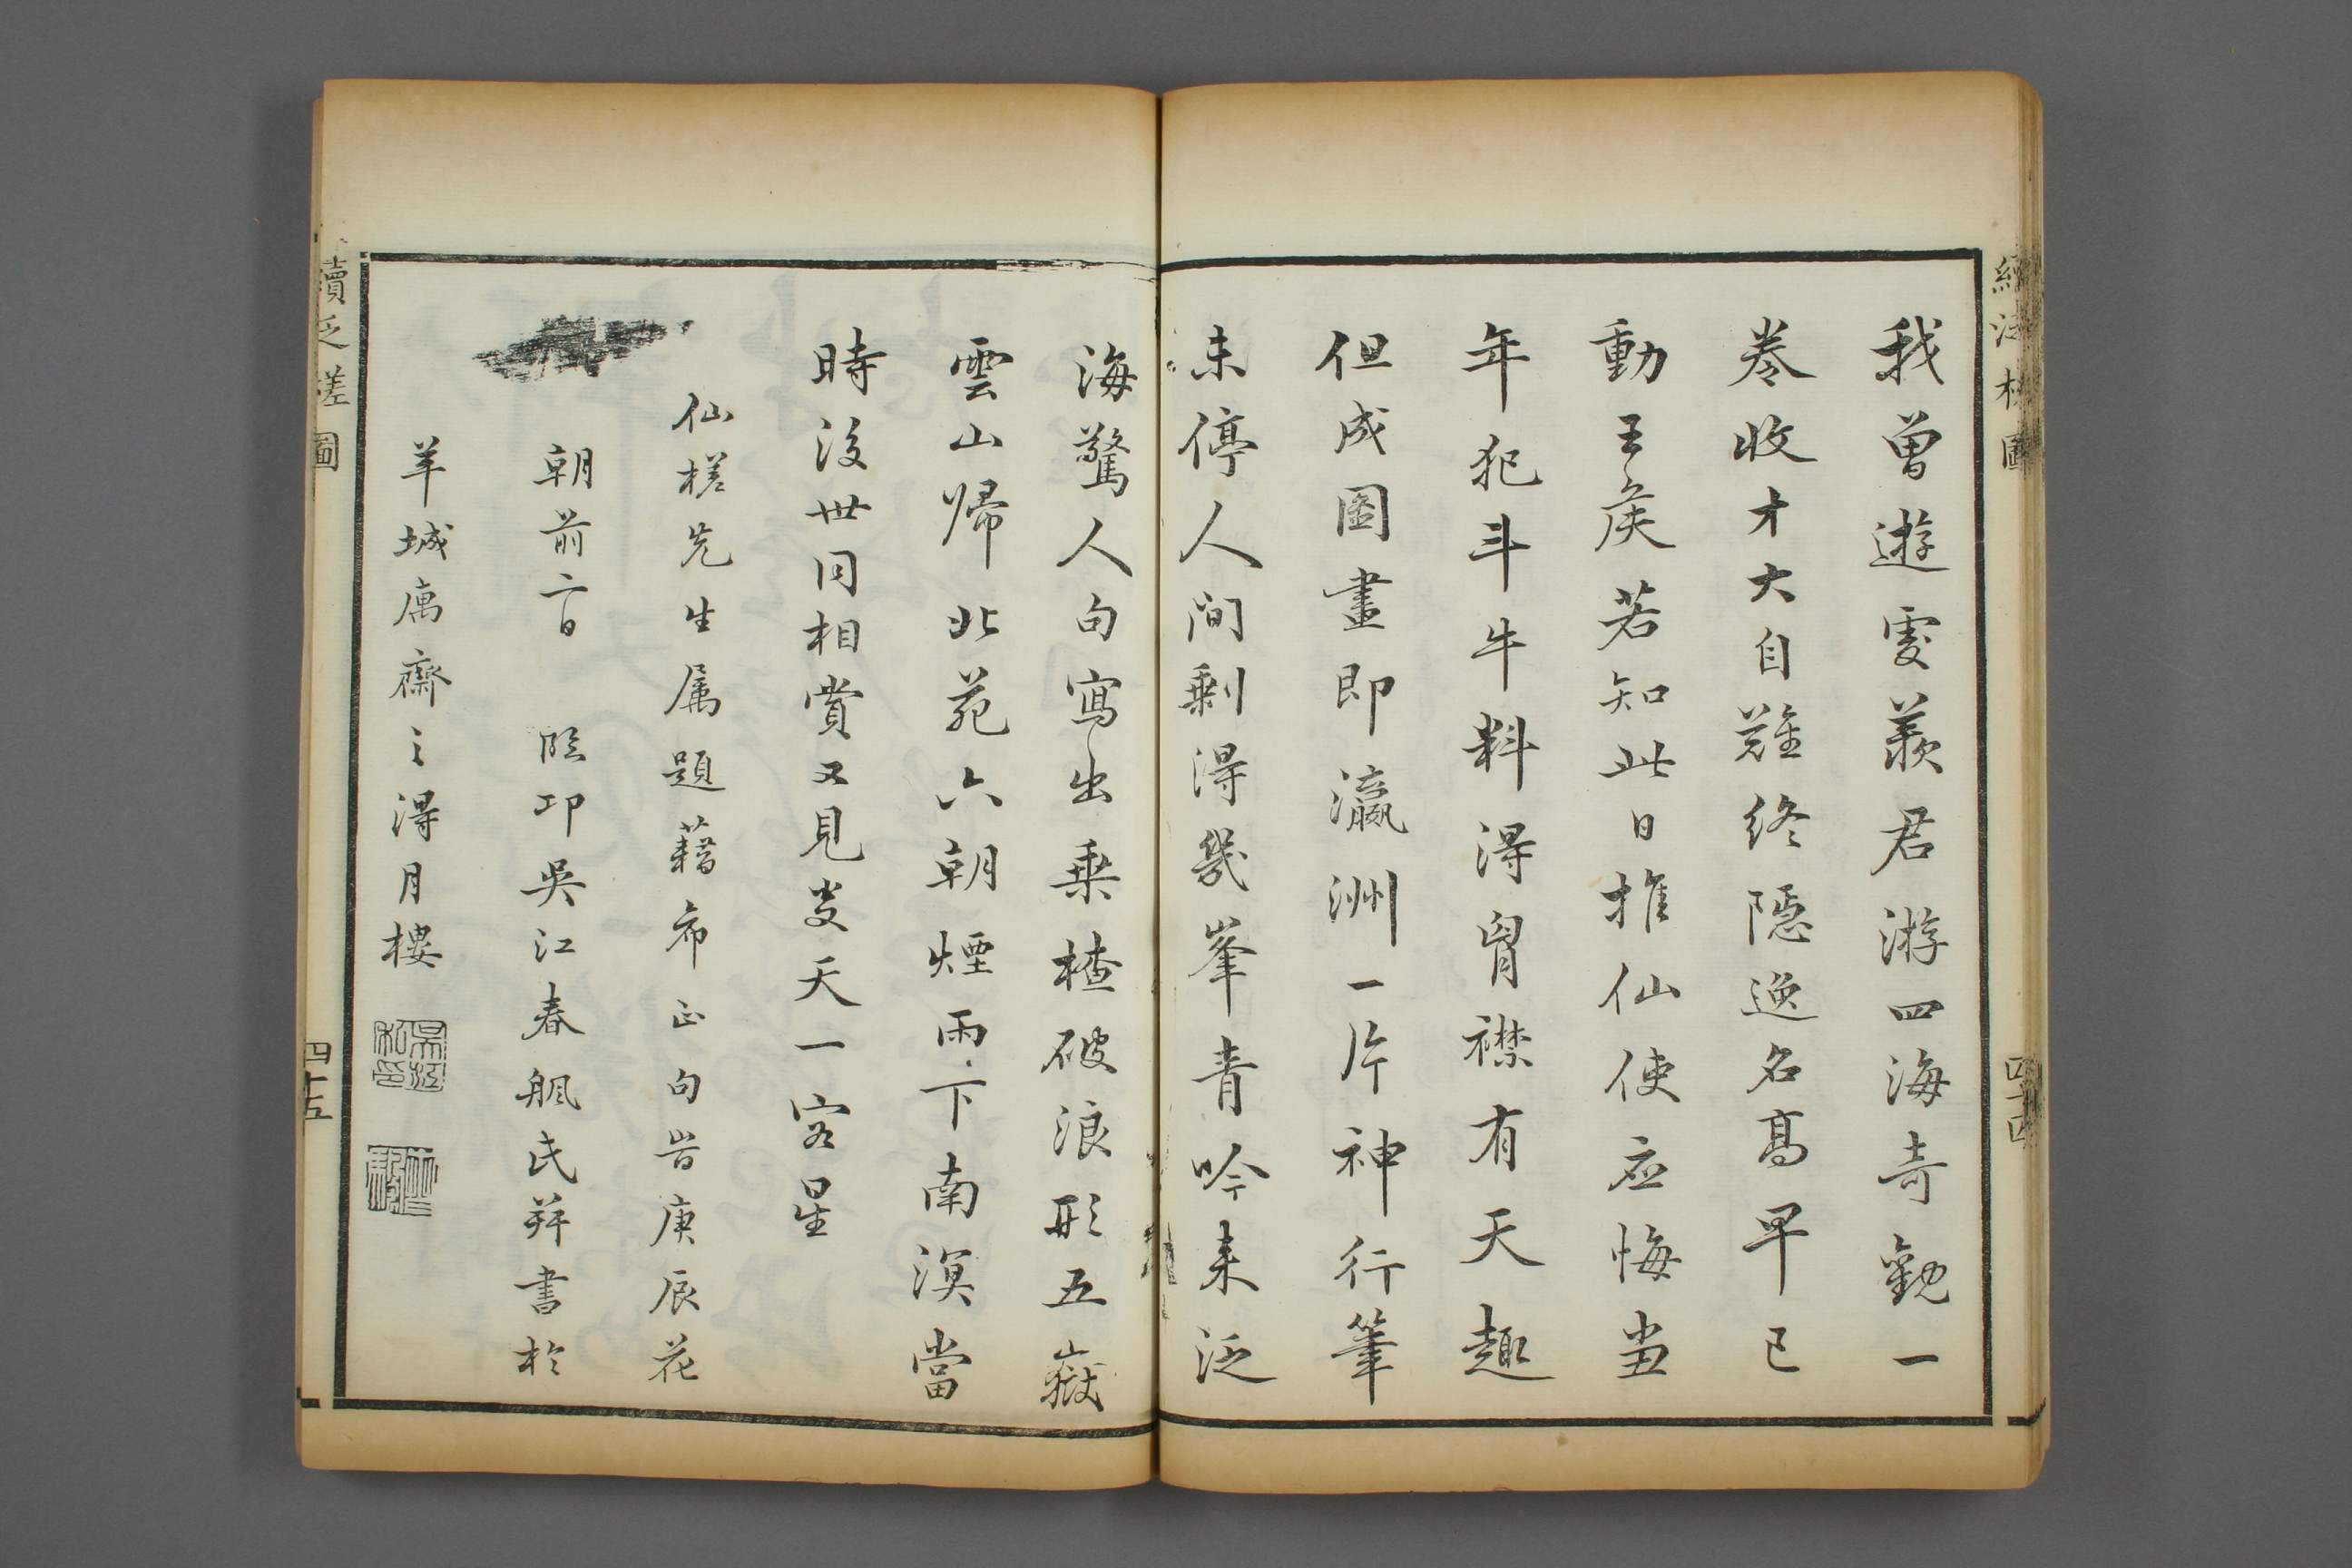 續泛槎圖
四十四
我曽遊處羨君游四海奇觀一
卷收才大自難終隱逸名髙早已
動王矦若知此日推仙使应悔當
年犯斗牛料得胷襟有天趣
但成圖畫即瀛洲一片神行筆
未停人间剩得幾峯青吟来泛
海驚人句寫出乗楂破浪形五嶽
雲山歸北苑六朝煙雨下南溟當
時後世同相賞又見茭天一客星
仙槎先生属題藉希正句旹庚辰花
朝前二日 臨邛吳江春颿氏并書於
羊城寓齋之得月樓
續泛槎圖
四十五